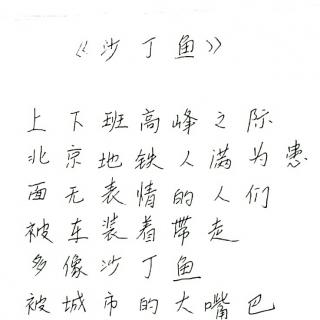 《沙丁鱼》
上下班高峰之际
北京地铁人满为患
面无表情的人们
被车装着带走
多像沙丁鱼
被城市的大嘴巴